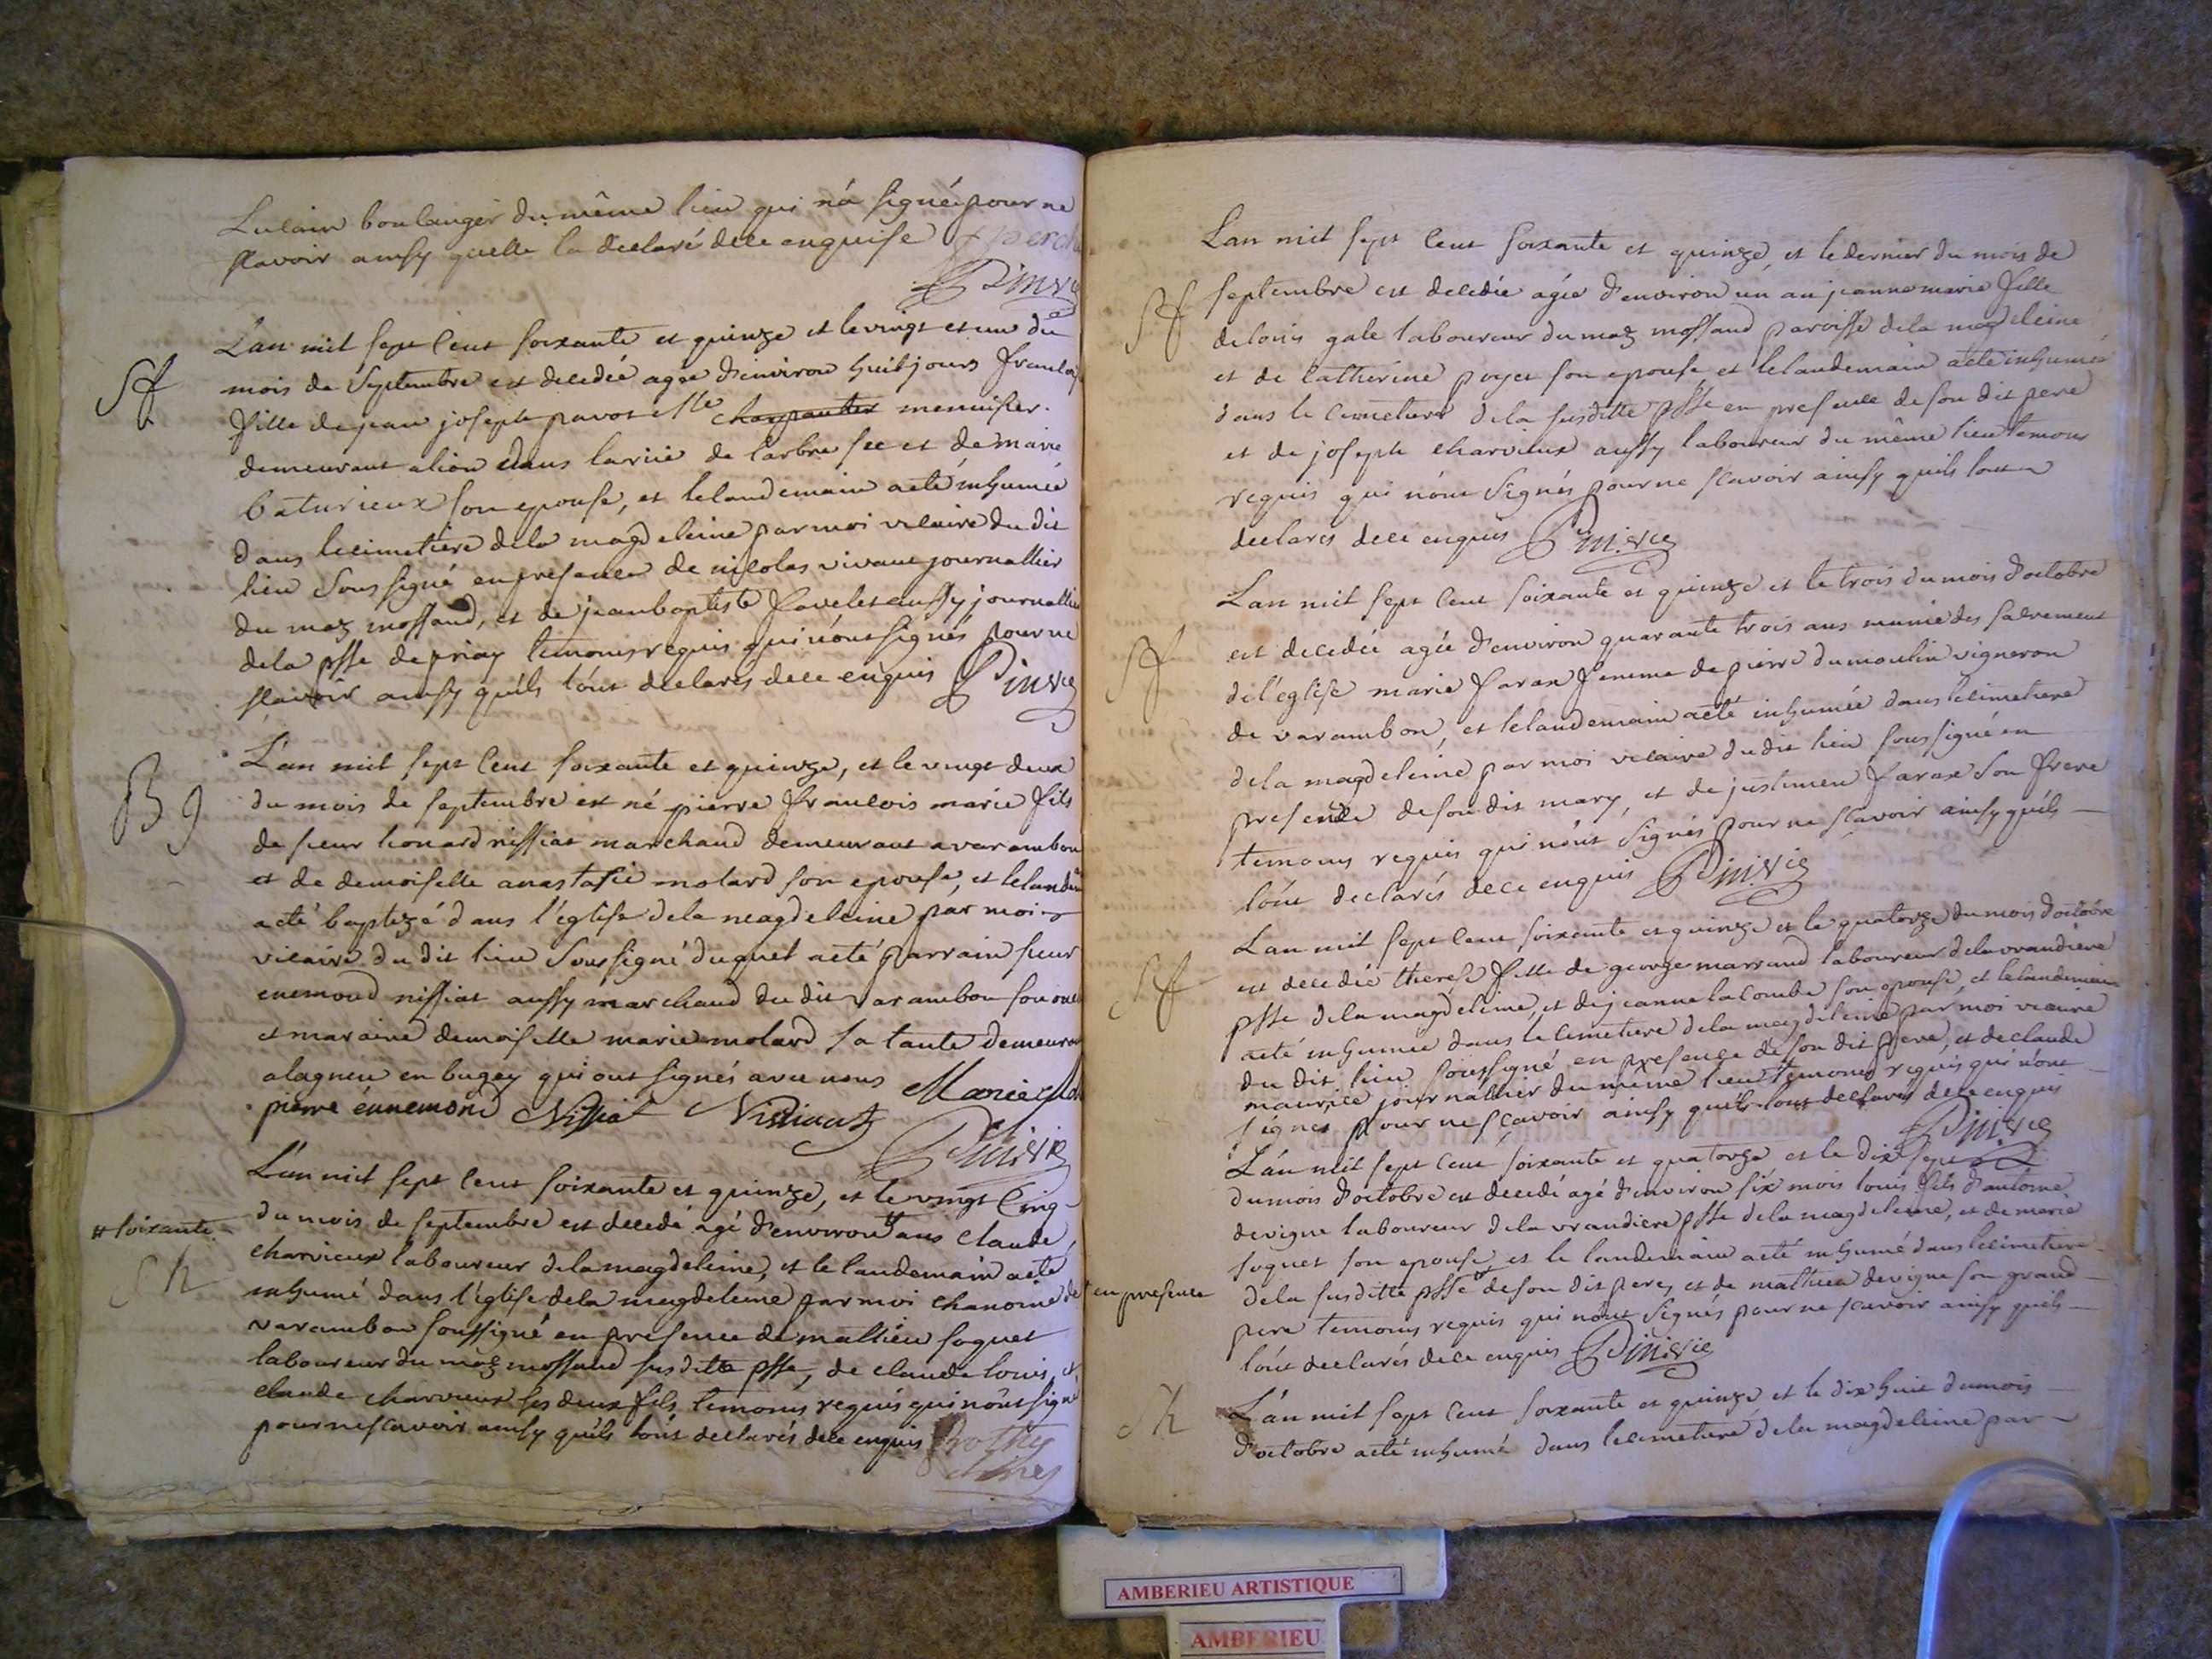 boulanger du même lieu qui n'a signé pour ne
scavoir ainsy quelle la declaré dece enquise
Pin Vic
L'an mil sept cent soixante et quinze et le vingt et un du
Sf
mois de Septembre est decedée agée d'environ huit jours
fille de jean joseph pavot Me charpantier menuisier
demeurant a lion dans la rüe de l'arbre sec et de marie
baturieux son epouse, et lelandemain a eté inhumée
dans lecimetiere dela magdeleine par moi vicaire du dit
lieu Soussigné en presence de nicolas vivant journallier
du maz mossand, et de jean baptiste favelet aussy journallier
dela psse de priay temoins requis qui n'ont signés pour ne
scavoir ainsy quils l'ont declarés dece enquis Pin Vic
L'an mil sept cent soixante et quinze, et le vingt deux
B g
du mois de septembre est né pierre francois marie fils
de sieur leonard nissiat marchand demeurant a varambon
et de demoiselle anastasie molard son epouse, et lelandem
a eté baptizé dans l'églese dela magdeleine par moi
vicaire du dit lieu Soussigné duquel a eté parrain sieur
enemond nissiat aussy marchand du dit varambon son oncle
et maraine demoiselle marie molard sa tante demeurant
a lagneu en bugey qui ont signés avec nous Marie
pierre énnemond Nissiat
Pin Vic
L'an mil sept cent soixante et quinze, et le vingt Cinq
# soixante
du mois de septembre est decedé agé d'environ # ans claude
charvieux laboureur dela magdeleine, et le landemain a eté
Sh
inhumé dans l'églese dela magdeleine par moi chanoine de
varambon soussigné en presence de mathieu foquet
laboureur du maz mossand susditte psse, de claude louis, et
claude charvieux ses deux fils temoins requis qui n'ont signé
pour ne scavoir ainsy quils l'ont declarés dece enquis
L'an mil sept cent soixante et quinze, et le dernier du mois de
Sf
septembre est decedée agée d'environ un an jeanne marie fille
de louis gale laboureur du maz mossand paroisse dela magdeleine
et de catherine poyet son epouse et lelandemain a eté inhumée
dans le cimetiere dela susditte psse en presence de son dit pere
et de joseph charvieux aussy laboureur du même lieu temoins
requis qui n'ont signés pour ne scavoir ainsy quils l'ont
declarés dece enquis Pin Vic
L'an mil sept cent soixante et quinze et le trois du mois d'octobre
Sf
est decedée agée d'environ quarante trois ans munie des sacrements
de l'eglise marie farax femme de pierre dumoulin vigneron
de varambon, et lelandemain a eté inhumée dans lecimetiere
dela magdeleine par moi vicaire du dit lieu soussigné en
presence de son dit mary, et de justinien farax son frere
temoins requis qui n'ont signés pour ne scavoir ainsy quils
l'ont declarés dece enquis Pin Vic
L'an mil sept cent soixante et quinze et le quatorze du mois d'octobre
Sf
est decedée therese fille de george marrand laboureur dela vrandiere
psse dela magdeleine, et de jeanne lacombe son epouse, et lelandemain
a eté inhumée dans le cimetiere dela magdeleine par moi vicaire
du dit lieu soussigné en presence de son dit pere, et de claude
maurice journallier du même lieu temoins requis qui n'ont
signés pour ne scavoir ainsy quils l'ont declarés dece enquis
Pin Vic
L'an mil sept cent soixante et quatorze et le dix sept
du mois d'octobre est decedé agé d'environ six mois louis fils d'antoine
devigne laboureur dela vrandiere psse dela magdeleine, et de marie
foquet son epouse, et le landemain a eté inhumé dans lecimetiere
en presence
dela susditte psse de son dit pere, et de mathieu devigne son grand
pere temoins requis qui n'ont signés pour ne scavoir ainsy quils
l'ont declarés dece enquis Pin Vic
Sh
L'an mil sept cent soixante et quinze et le dix huit du mois
d'octobre a eté inhumé dans lecimetiere dela magdeleine par
AMBERIEU ARTISTIQUE
AMBERIEU